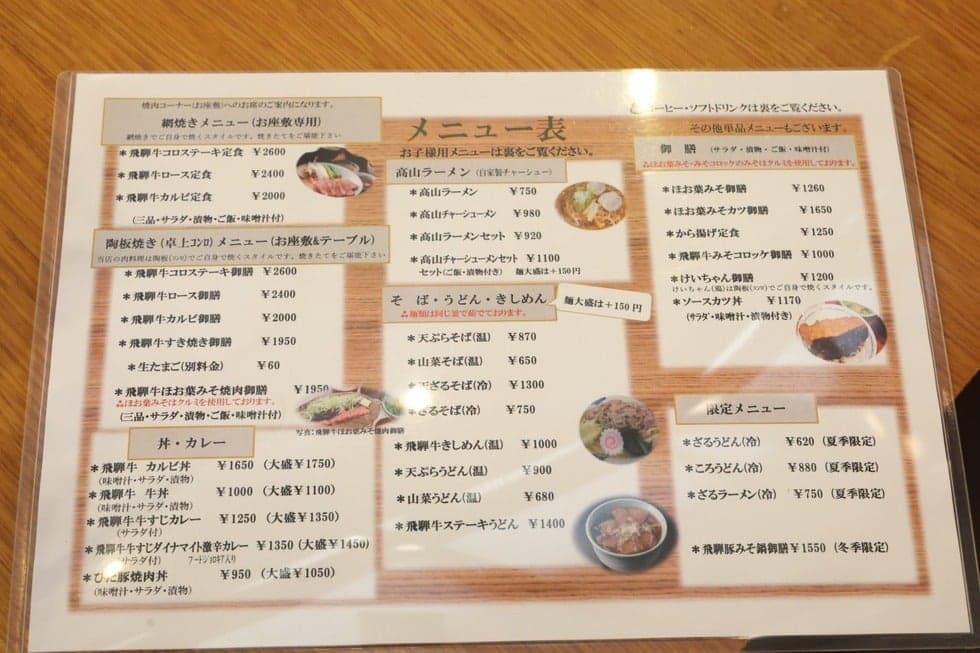 焼肉コーナー(お座敷)へのお席のご案内になります。
網焼きメニュー(お座敷専用)
網焼きでご自身で焼くスタイルです。焼きたてをご堪能下さい
＊飛騨牛コロステーキ定食 ￥2600
＊飛騨牛ロース定食 ￥2400
＊飛騨牛カルビ定食 ￥2000
(三品・サラダ・漬物・ご飯・味噌汁付)
陶板焼き(卓上コンロ)メニュー(お座敷&テーブル)
当店の肉料理は陶板(コンロ)でご自身で焼くスタイルです。焼きたてをご堪能下さい
＊飛騨牛コロステーキ御膳 ￥2600
＊飛騨牛ロース御膳 ￥2400
＊飛騨牛カルビ御膳 ￥2000
＊飛騨牛すき焼き御膳 ￥1950
＊生たまご(別料金) ￥60
＊飛騨牛ほお葉みそ焼肉御膳 ￥1950
ほお葉みそはクルミを使用しております。
(三品・サラダ・漬物・ご飯・味噌汁付)
写真:飛騨牛ほお葉みそ焼肉御膳
丼・カレー
＊飛騨牛 カルビ丼 ￥1650 (大盛￥1750)
(味噌汁・サラダ・漬物)
＊飛騨牛 牛丼 ￥1000 (大盛￥1100)
(味噌汁・サラダ・漬物)
＊飛騨牛牛すじカレー ￥1250 (大盛￥1350)
(サラダ付)
＊飛騨牛牛すじダイナマイト激辛カレー ￥1350 (大盛￥1450)
(サラダ付)
＊ひだ豚焼肉丼 ￥950 (大盛￥1050)
(味噌汁・サラダ・漬物)
メニュー表
お子様用メニューは裏をご覧ください。
高山ラーメン(自家製チャーシュー)
＊高山ラーメン ￥750
＊高山チャーシューメン ￥980
＊高山ラーメンセット ￥920
＊高山チャーシューメンセット ￥1100
セット(ご飯・漬物付き) 麺大盛は+150円
そば・うどん・きしめん
麺類は同じ釜で茹でております。
麺大盛は+150円
＊天ぷらそば(温) ￥870
＊山菜そば(温) ￥650
＊天ざるそば(冷) ￥1300
＊ざるそば(冷) ￥750
＊飛騨牛きしめん(温) ￥1000
＊天ぷらうどん(温) ￥900
＊山菜うどん(温) ￥680
＊飛騨牛ステーキうどん ￥1400
コーヒー・ソフトドリンクは裏をご覧ください。
その他単品メニューもございます。
御膳 (サラダ・漬物・ご飯・味噌汁付)
ほお葉みそ・みそコロッケのみそはクルミを使用しております。
＊ほお葉みそ御膳 ￥1260
＊ほお葉みそカツ御膳 ￥1650
＊から揚げ定食 ￥1250
＊飛騨牛みそコロッケ御膳 ￥1000
＊けいちゃん御膳 ￥1200
けいちゃん(鶏)は陶板(コンロ)でご自身で焼くスタイルです。
＊ソースカツ丼 ￥1170
(サラダ・味噌汁・漬物付き)
限定メニュー
＊ざるうどん(冷) ￥620 (夏季限定)
＊ころうどん(冷) ￥880 (夏季限定)
＊ざるラーメン(冷) ￥750 (夏季限定)
＊飛騨豚みそ鍋御膳￥1550 (冬季限定)